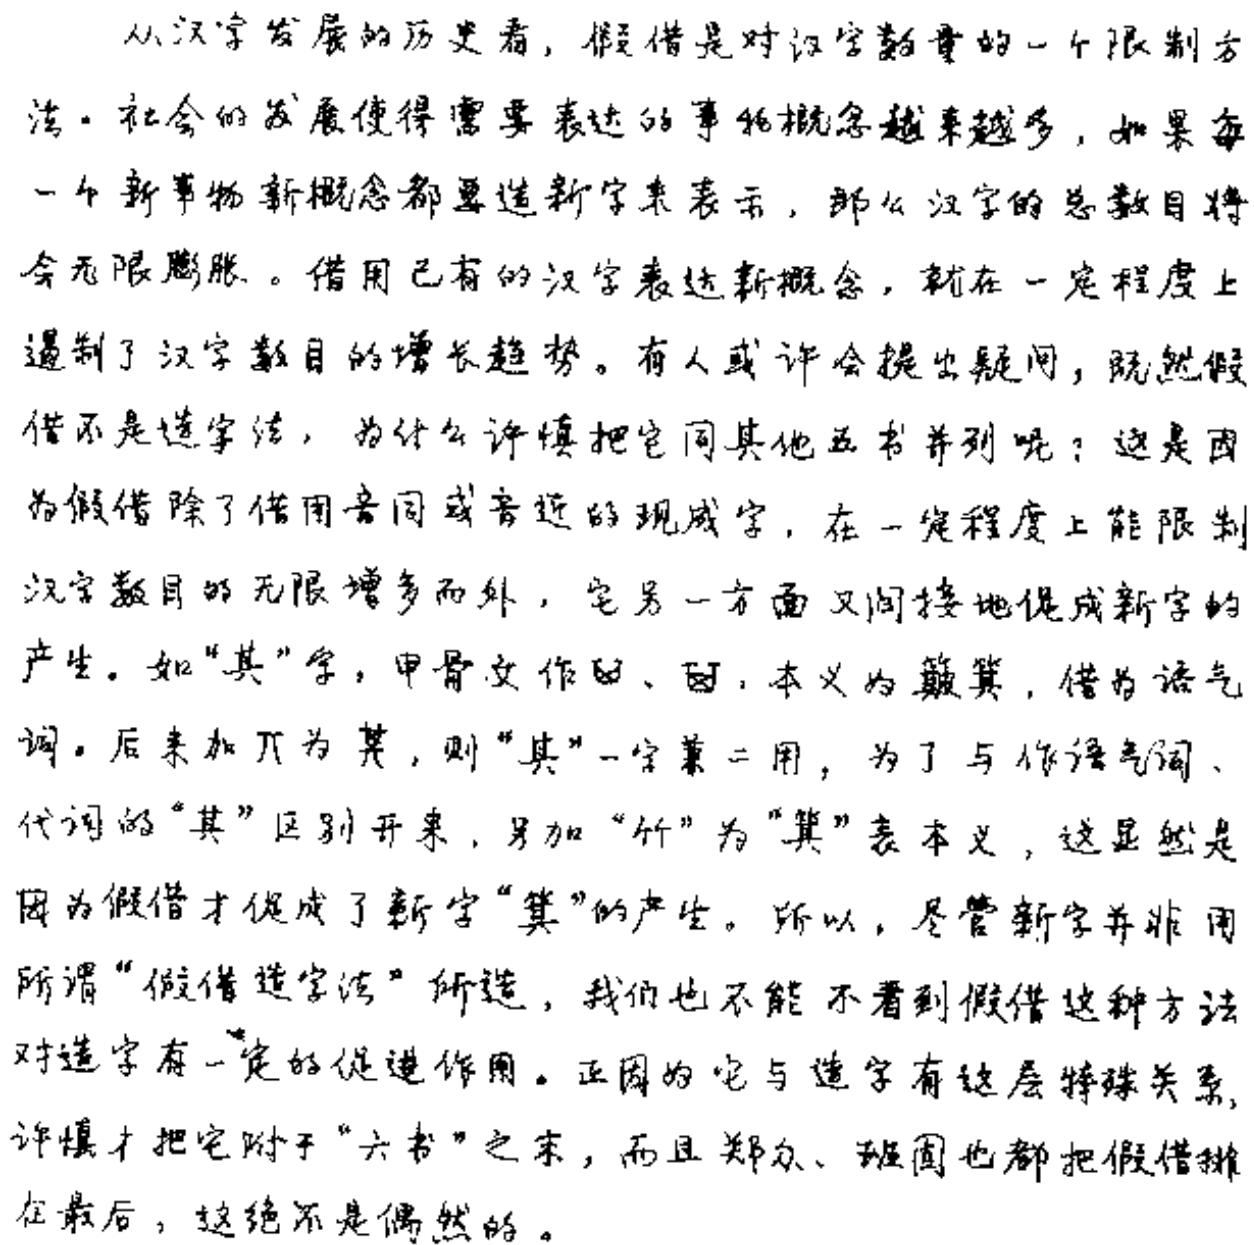 从汉字发展的历史看，假借是对汉字数量的一个限制方
法。社会的发展使得需要表达的事物概念越来越多，如果每
一个新事物新概念都要造新字来表示，那么汉字的总数目将
会无限膨胀。借用已有的汉字表达新概念，就在一定程度上
遏制了汉字数目的增长趋势。有人或许会提出疑问，既然假
借不是造字法，为什么许慎把它同其他五书并列呢？这是因
为假借除了借用音同或音近的现成字，在一定程度上能限制
汉字数目的无限增多而外，它另一方面又间接地促成新字的
产生。如“其”字，甲骨文作、，本义为簸箕，借为语气
词。后来加丌为其，则“其”一字兼二用，为了与作语气词、
代词的“其”区别开来，另加“竹”为“箕”表本义，这显然是
因为假借才促成了新字“箕”的产生。所以，尽管新字并非用
所谓“假借造字法”所造，我们也不能不看到假借这种方法
对造字有一定的促进作用。正因为它与造字有这层特殊关系，
许慎才把它附于“六书”之末，而且郑众、班固也都把假借排
在最后，这绝不是偶然的。